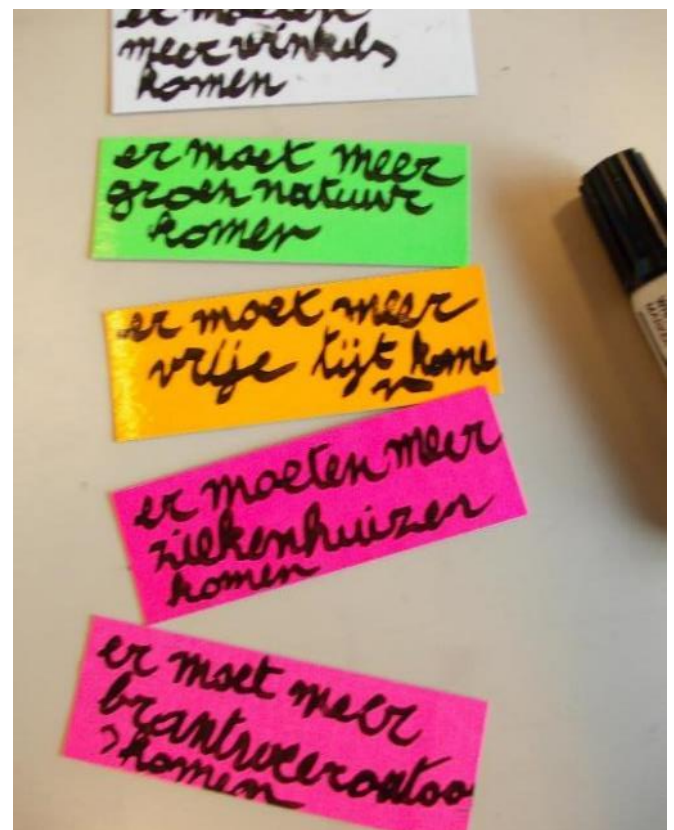 er moeten
meer winkels
komen
er moet meer
groen natuur
komen
er moet meer
vrije tijt kome
n
er moeten meer
ziekenhuizen
komen
er moet meer
komen